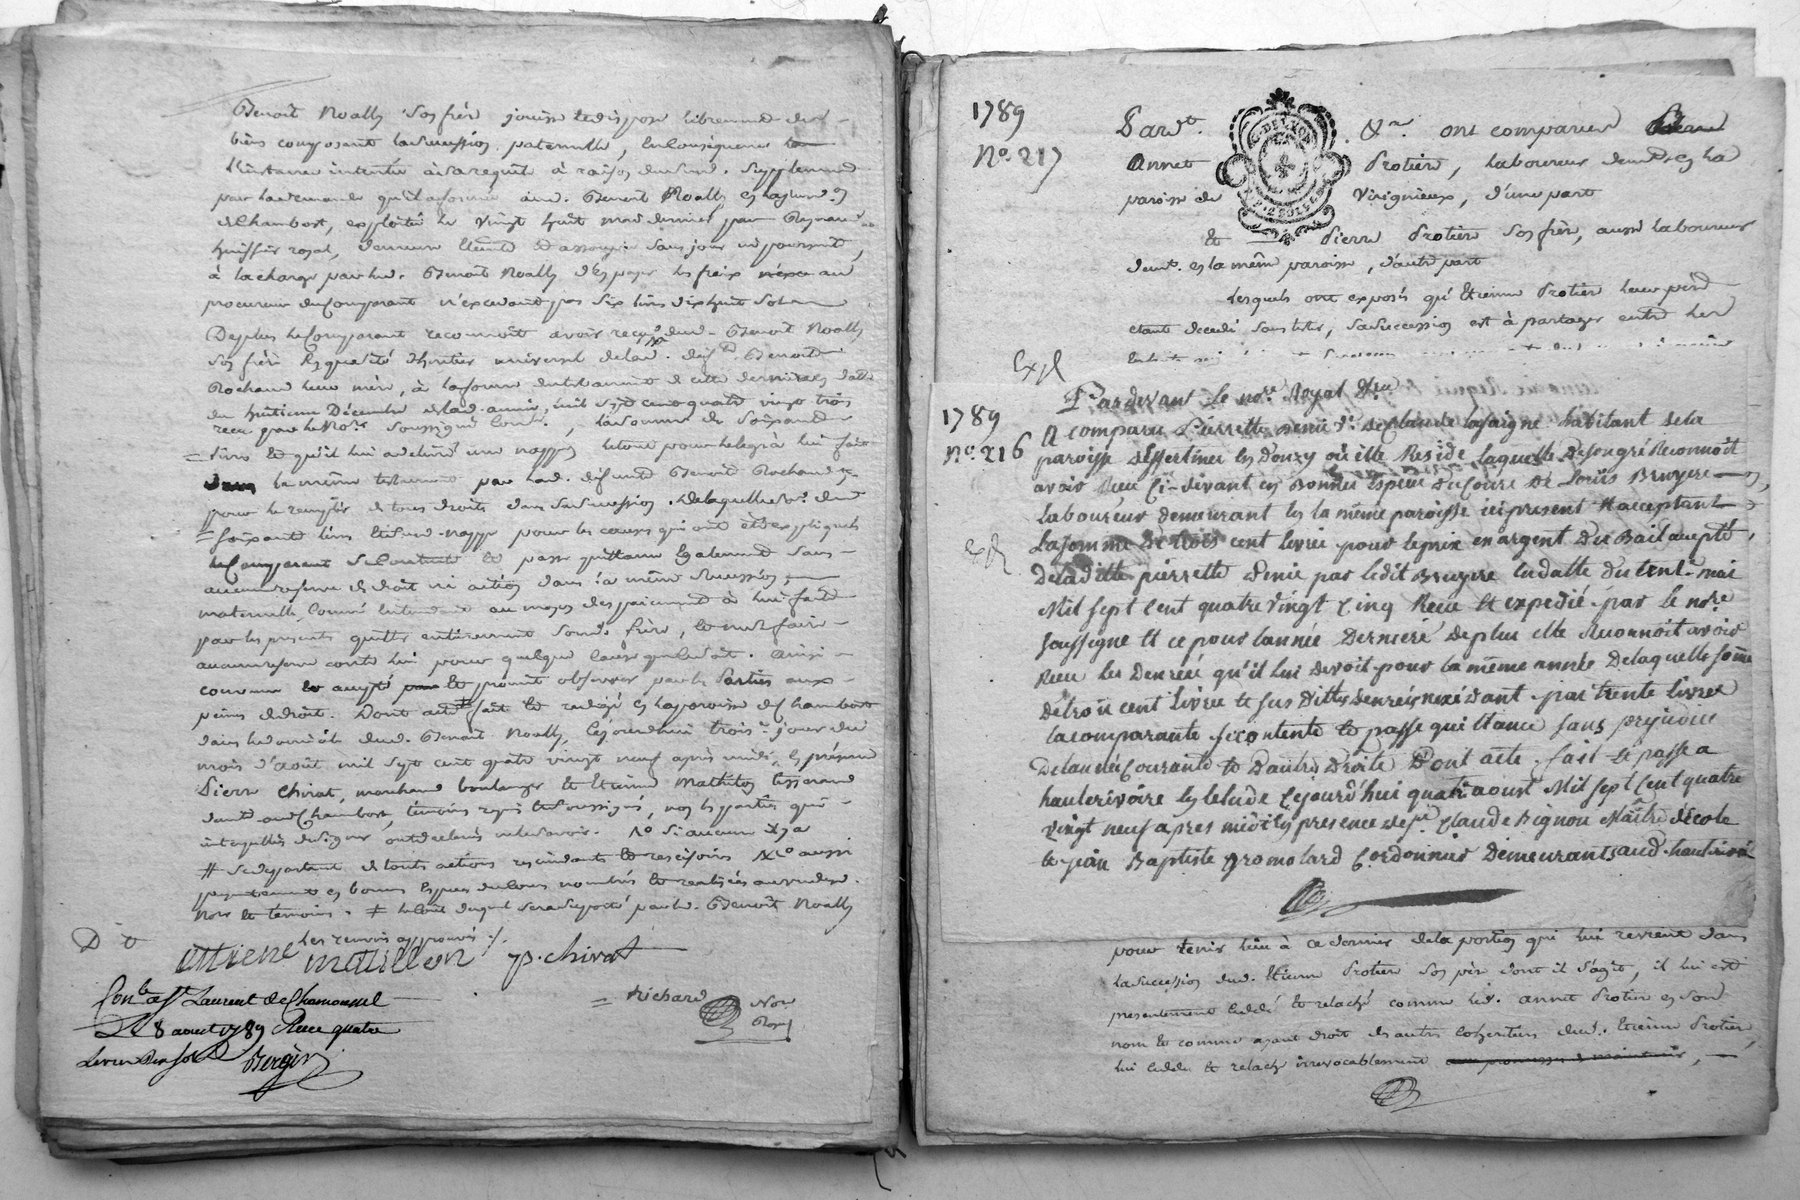 Benoît Noally son frère jouisse et dispose librement des
biens composant la succession paternelle, en conséquence
l'instance intentée à sa requête à raison dud. supplément
par la demande qu'il a formée aud. Benoit Noally
de Chambost, exploité le vingt huit mai dernier par Reynaud
huissier royal, demeure éteinte et assoupie sans jour ni poursuite,
à la charge par led. Benoît Noally d'en payer les fraix au
procureur du comparant n'excedant pas six livres dixhuit sols
De plus le comparant reconnoit avoir reçu dud. Benoît Noally
son frère en qualité d'héritier universel de lad. défte Benoite
Rochand leur mère, à la forme du testament de cette dernière en datte
du huitieme Décembre de lad. année mil sept cent quatre vingt trois
reçu par le No.re soussigné, la somme de soixante
livres et qu'il lui a delivré une nappe, le tout pour le legs à lui fait
dans le même testament par lad. défunte Benoite Rochand
pour le remplir de tous droits dans sa succession. de laquelle somme de
soixante livres et lad. nappe pour les causes qui ont été expliqués
le comparant se contente et passe quittance également sans
aucune reserve de droit ni action dans la même succession
maternelle, comme au moyen des payements à lui faits
par les présentes quitte entièrement sond. frère, et ne se faire
aucune reserve contre lui pour quelque cause que ce soit. Ainsi
convenu et accepté et promis observer par les Parties aux
peines de droit. Dont acte fait et redigé en la paroisse de Chambost
dans le domicile dud. Benoit Noally, ce jourd'hui trois.e jour du
mois d'août mil sept cent quatre vingt neuf après midi, en présence
Pierre Chirat, marchand boulanger et Etienne Mathelon tisserand
demt. aud. Chambost, temoins requis et soussignés, non les parties qui
interpellées de signer ont déclaré ne le savoir.
# se departant de toutes actions rescindantes et rescisoires aussi
presentement en bonnes espèces de cours nombrés et realisés au vu desd.
Nore et temoins. # le coût duquel sera suporté par led. Benoît Noally
les renvois approuvés ./.
attiene matillon p. chirat
Richard Nore Royal
Con.lé a St. Laurent de Chamousset
Le 8 aoust 1789 Reçu quatre
Bergier
1789
No. 217
Pardt. &a. ont comparus
Annet Protière, laboureur demt. en la
paroisse de Virigneux, d'une part
et Pierre Protière son frère, aussi laboureur
demt. en la même paroisse, d'autre part
lesquels ont exposés qu'Etienne Protière leur père
etant decedé sans tester, sa succession est à partager entre les
Expl
1789
No. 216
Pardevant le no.re Royal
A comparu Pierrette Denie Ve. de Claude Lafaigne habitant de la
paroisse Dessertines en Donzy où elle Reside, laquelle De son gré Reconnoit
avoir Reçu Ci-devant en Bonnes Espèces Du Cours De Loüis Bruyere
Laboureur demeurant en la même paroisse ici present et acceptant
La somme De trois cent livres pour le prix en argent Du Bail accepté
De la ditte pierrette denie par ledit Bruyere en datte du trent.e mai
Mil sept cent quatre vingt cinq Reçu et expedié par le no.re
soussigné et ce pour lannée Derniere De plus elle Reconnoit avoir
Reçu les Denrées qu'il lui devoit pour la même année De laquelle some
De trois cent livres et sus dittes denrées nexédant pas trente livres
la comparante se contente et passe quittance sans prejudice
De lannée Courante et Dautres Droits Dont acte. fait et passé a
hauterivoire en letude Cejourd'hui quatre aoust Mil sept Cent quatre
vingt neuf apres midi en presence de sr. Claude Bignon Maître décole
et jean Baptiste gromolard Cordonnier Demeurants aud. hauterivoire
Expl
pour tenir lieu à ce dernier de la portion qui lui revient dans
la succession dud. Etienne Protière son père dont il s'agit, il lui est
presentement cedé et relaché comme led. annet Protière en son
nom et comme ayant droit des autres cohéritiers dud. Etienne Protière,
lui cede et relache irrevocablement